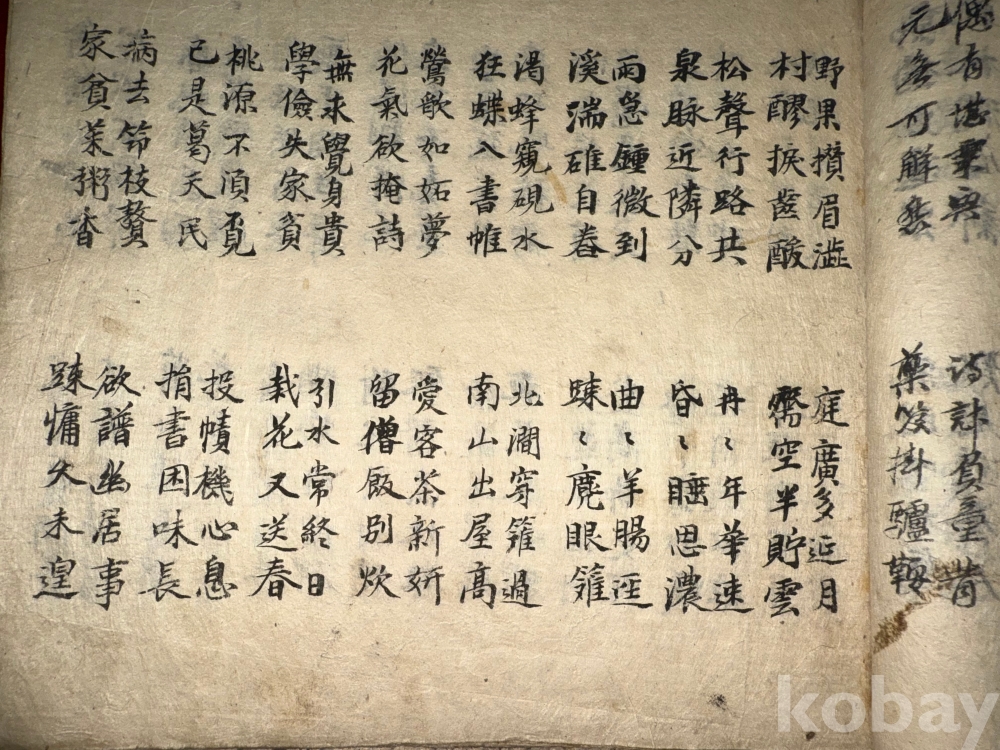 偶有堪乘興
元無可解愁
野果攢眉澁
村醪捩齒酸
松聲行路共
泉脉近隣分
雨急鍾微到
溪湍碓自舂
渴蜂窺硯水
狂蝶入書帷
鶯歌如妬夢
花氣欲掩詩
無求覺身貴
學儉失家貧
桃源不須覓
已是葛天民
病去笻枝贅
家貧菜粥香
負童背
藥笈掛驢鞍
庭廣多延月
齋空半貯雲
冉〻年華速
昏〻睡思濃
曲〻羊腸逕
踈〻麂眼籬
北澗穿籬過
南山出屋高
愛客茶新姸
留僧飯別炊
引水常終日
栽花又送春
投幘機心息
捐書困味長
欲譜幽居事
踈慵久未遑
kobay